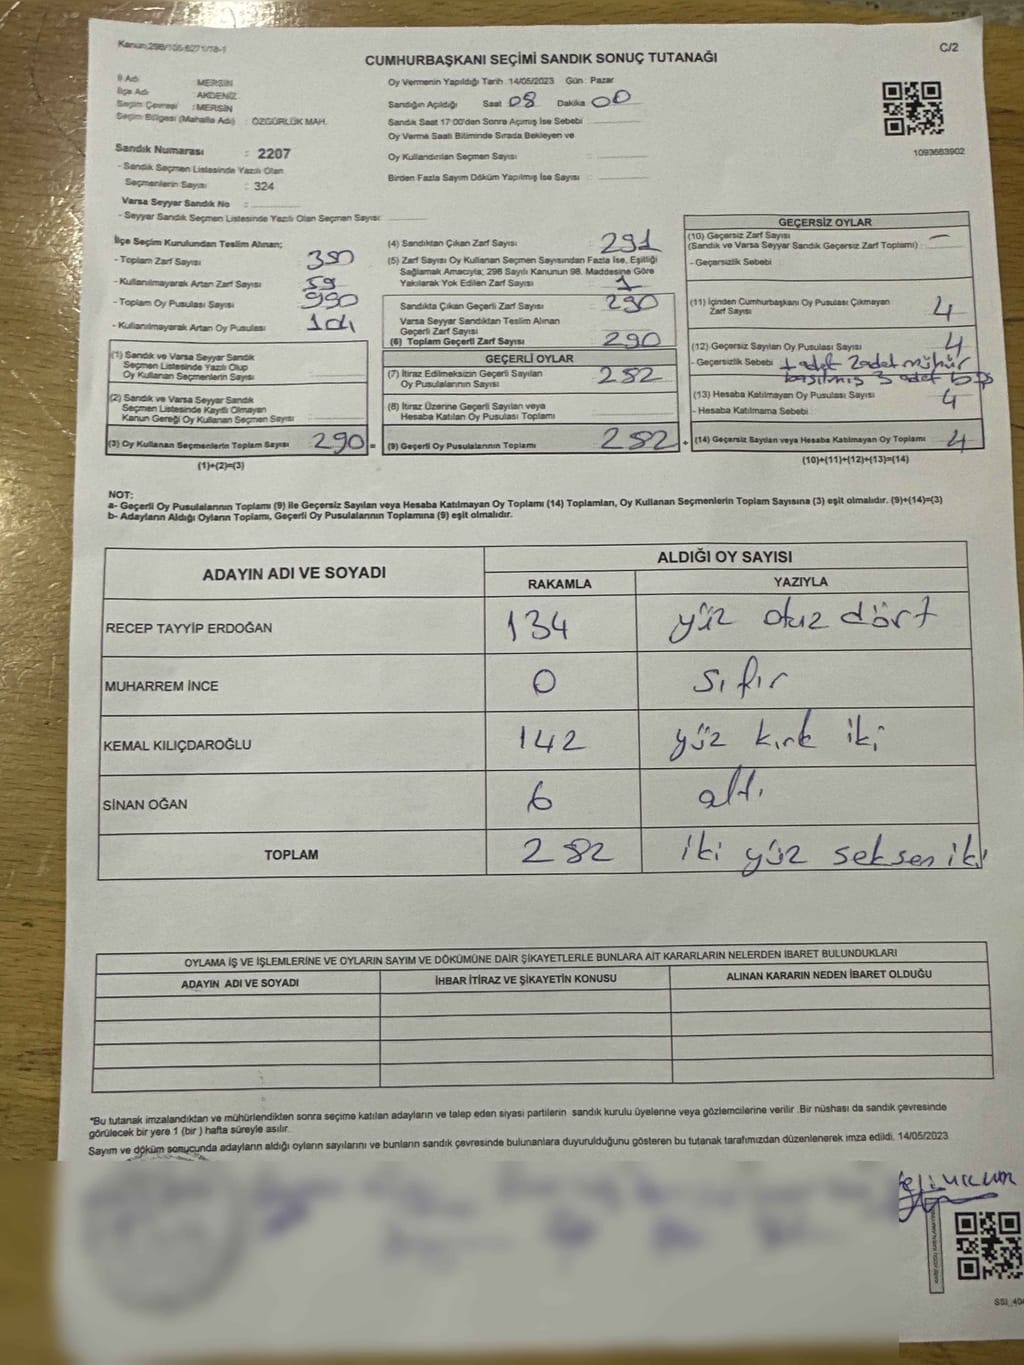 Kanun:298/105-6271/18-1
C/2
CUMHURBAŞKANI SEÇİMİ SANDIK SONUÇ TUTANAĞI
İl Adı : MERSİN
İlçe Adı : AKDENİZ
Seçim Çevresi : MERSİN
Seçim Bölgesi (Mahalle Adı) : ÖZGÜRLÜK MAH.
Sandık Numarası : 2207
- Sandık Seçmen Listesinde Yazılı Olan
Seçmenlerin Sayısı : 324
Varsa Seyyar Sandık No :
- Seyyar Sandık Seçmen Listesinde Yazılı Olan Seçmen Sayısı:
Oy Vermenin Yapıldığı Tarih :14/05/2023 Gün : Pazar
Sandığın Açıldığı Saat 08 Dakika 00
Sandık Saat 17:00'den Sonra Açımış İse Sebebi
Oy Verme Saati Bitiminde Sırada Bekleyen ve
Oy Kullandırılan Seçmen Sayısı :
Birden Fazla Sayım Döküm Yapılmış İse Sayısı :
1093663902
İlçe Seçim Kurulundan Teslim Alınan;
- Toplam Zarf Sayısı 350
- Kullanılmayarak Artan Zarf Sayısı 59
- Toplam Oy Pusulası Sayısı
- Kullanılmayarak Artan Oy Pusulası
(1) Sandık ve Varsa Seyyar Sandık
Seçmen Listesinde Yazılı Olup
Oy Kullanan Seçmenlerin Sayısı
(2) Sandık ve Varsa Seyyar Sandık
Seçmen Listesinde Kayıtlı Olmayan
Kanun Gereği Oy Kullanan Seçmen Sayısı
(3) Oy Kullanan Seçmenlerin Toplam Sayısı 290 =
(1)+(2)=(3)
(4) Sandıktan Çıkan Zarf Sayısı : 291
(5) Zarf Sayısı Oy Kullanan Seçmen Sayısından Fazla İse, Eşitliği
Sağlamak Amacıyla; 298 Sayılı Kanunun 98. Maddesine Göre
Yakılarak Yok Edilen Zarf Sayısı : 1
Sandıkta Çıkan Geçerli Zarf Sayısı 290
Varsa Seyyar Sandıktan Teslim Alınan
Geçerli Zarf Sayısı
(6) Toplam Geçerli Zarf Sayısı 290
GEÇERLİ OYLAR
(7) İtiraz Edilmeksizin Geçerli Sayılan
Oy Pusulalarının Sayısı 282
(8) İtiraz Üzerine Geçerli Sayılan veya
Hesaba Katılan Oy Pusulası Toplamı
(9) Geçerli Oy Pusulalarının Toplamı 282 +
GEÇERSİZ OYLAR
(10) Geçersiz Zarf Sayısı –
(Sandık ve Varsa Seyyar Sandık Geçersiz Zarf Toplamı)
- Geçersizlik Sebebi :
(11) İçinden Cumhurbaşkanı Oy Pusulası Çıkmayan
Zarf Sayısı 4
(12) Geçersiz Sayılan Oy Pusulası Sayısı 4
- Geçersizlik Sebebi : 1 adet 2 adet mühür
basılmış 3 adet boş
(13) Hesaba Katılmayan Oy Pusulası Sayısı 4
- Hesaba Katılmama Sebebi
(14) Geçersiz Sayılan veya Hesaba Katılmayan Oy Toplamı 4
(10)+(11)+(12)+(13)=(14)
NOT:
a- Geçerli Oy Pusulalarının Toplamı (9) ile Geçersiz Sayılan veya Hesaba Katılmayan Oy Toplamı (14) Toplamları, Oy Kullanan Seçmenlerin Toplam Sayısına (3) eşit olmalıdır. (9)+(14)=(3)
b- Adayların Aldığı Oyların Toplamı, Geçerli Oy Pusulalarının Toplamına (9) eşit olmalıdır.
ADAYIN ADI VE SOYADI
ALDIĞI OY SAYISI
RAKAMLA YAZIYLA
RECEP TAYYİP ERDOĞAN 134 yüz otuz dört
MUHARREM İNCE 0 sıfır
KEMAL KILIÇDAROĞLU 142 yüz kırk iki
SİNAN OĞAN 6 altı
TOPLAM 282 iki yüz seksen iki
OYLAMA İŞ VE İŞLEMLERİNE VE OYLARIN SAYIM VE DÖKÜMÜNE DAİR ŞİKAYETLERLE BUNLARA AİT KARARLARIN NELERDEN İBARET BULUNDUKLARI
ADAYIN ADI VE SOYADI İHBAR İTİRAZ VE ŞİKAYETİN KONUSU ALINAN KARARIN NEDEN İBARET OLDUĞU
*Bu tutanak imzalandıktan ve mühürlendikten sonra seçime katılan adayların ve talep eden siyasi partilerin sandık kurulu üyelerine veya gözlemcilerine verilir .Bir nüshası da sandık çevresinde
görülecek bir yere 1 (bir ) hafta süreyle asılır.
Sayım ve döküm sonucunda adayların aldığı oyların sayılarını ve bunların sandık çevresinde bulunanlara duyurulduğunu gösteren bu tutanak tarafımızdan düzenlenerek imza edildi. 14/05/2023